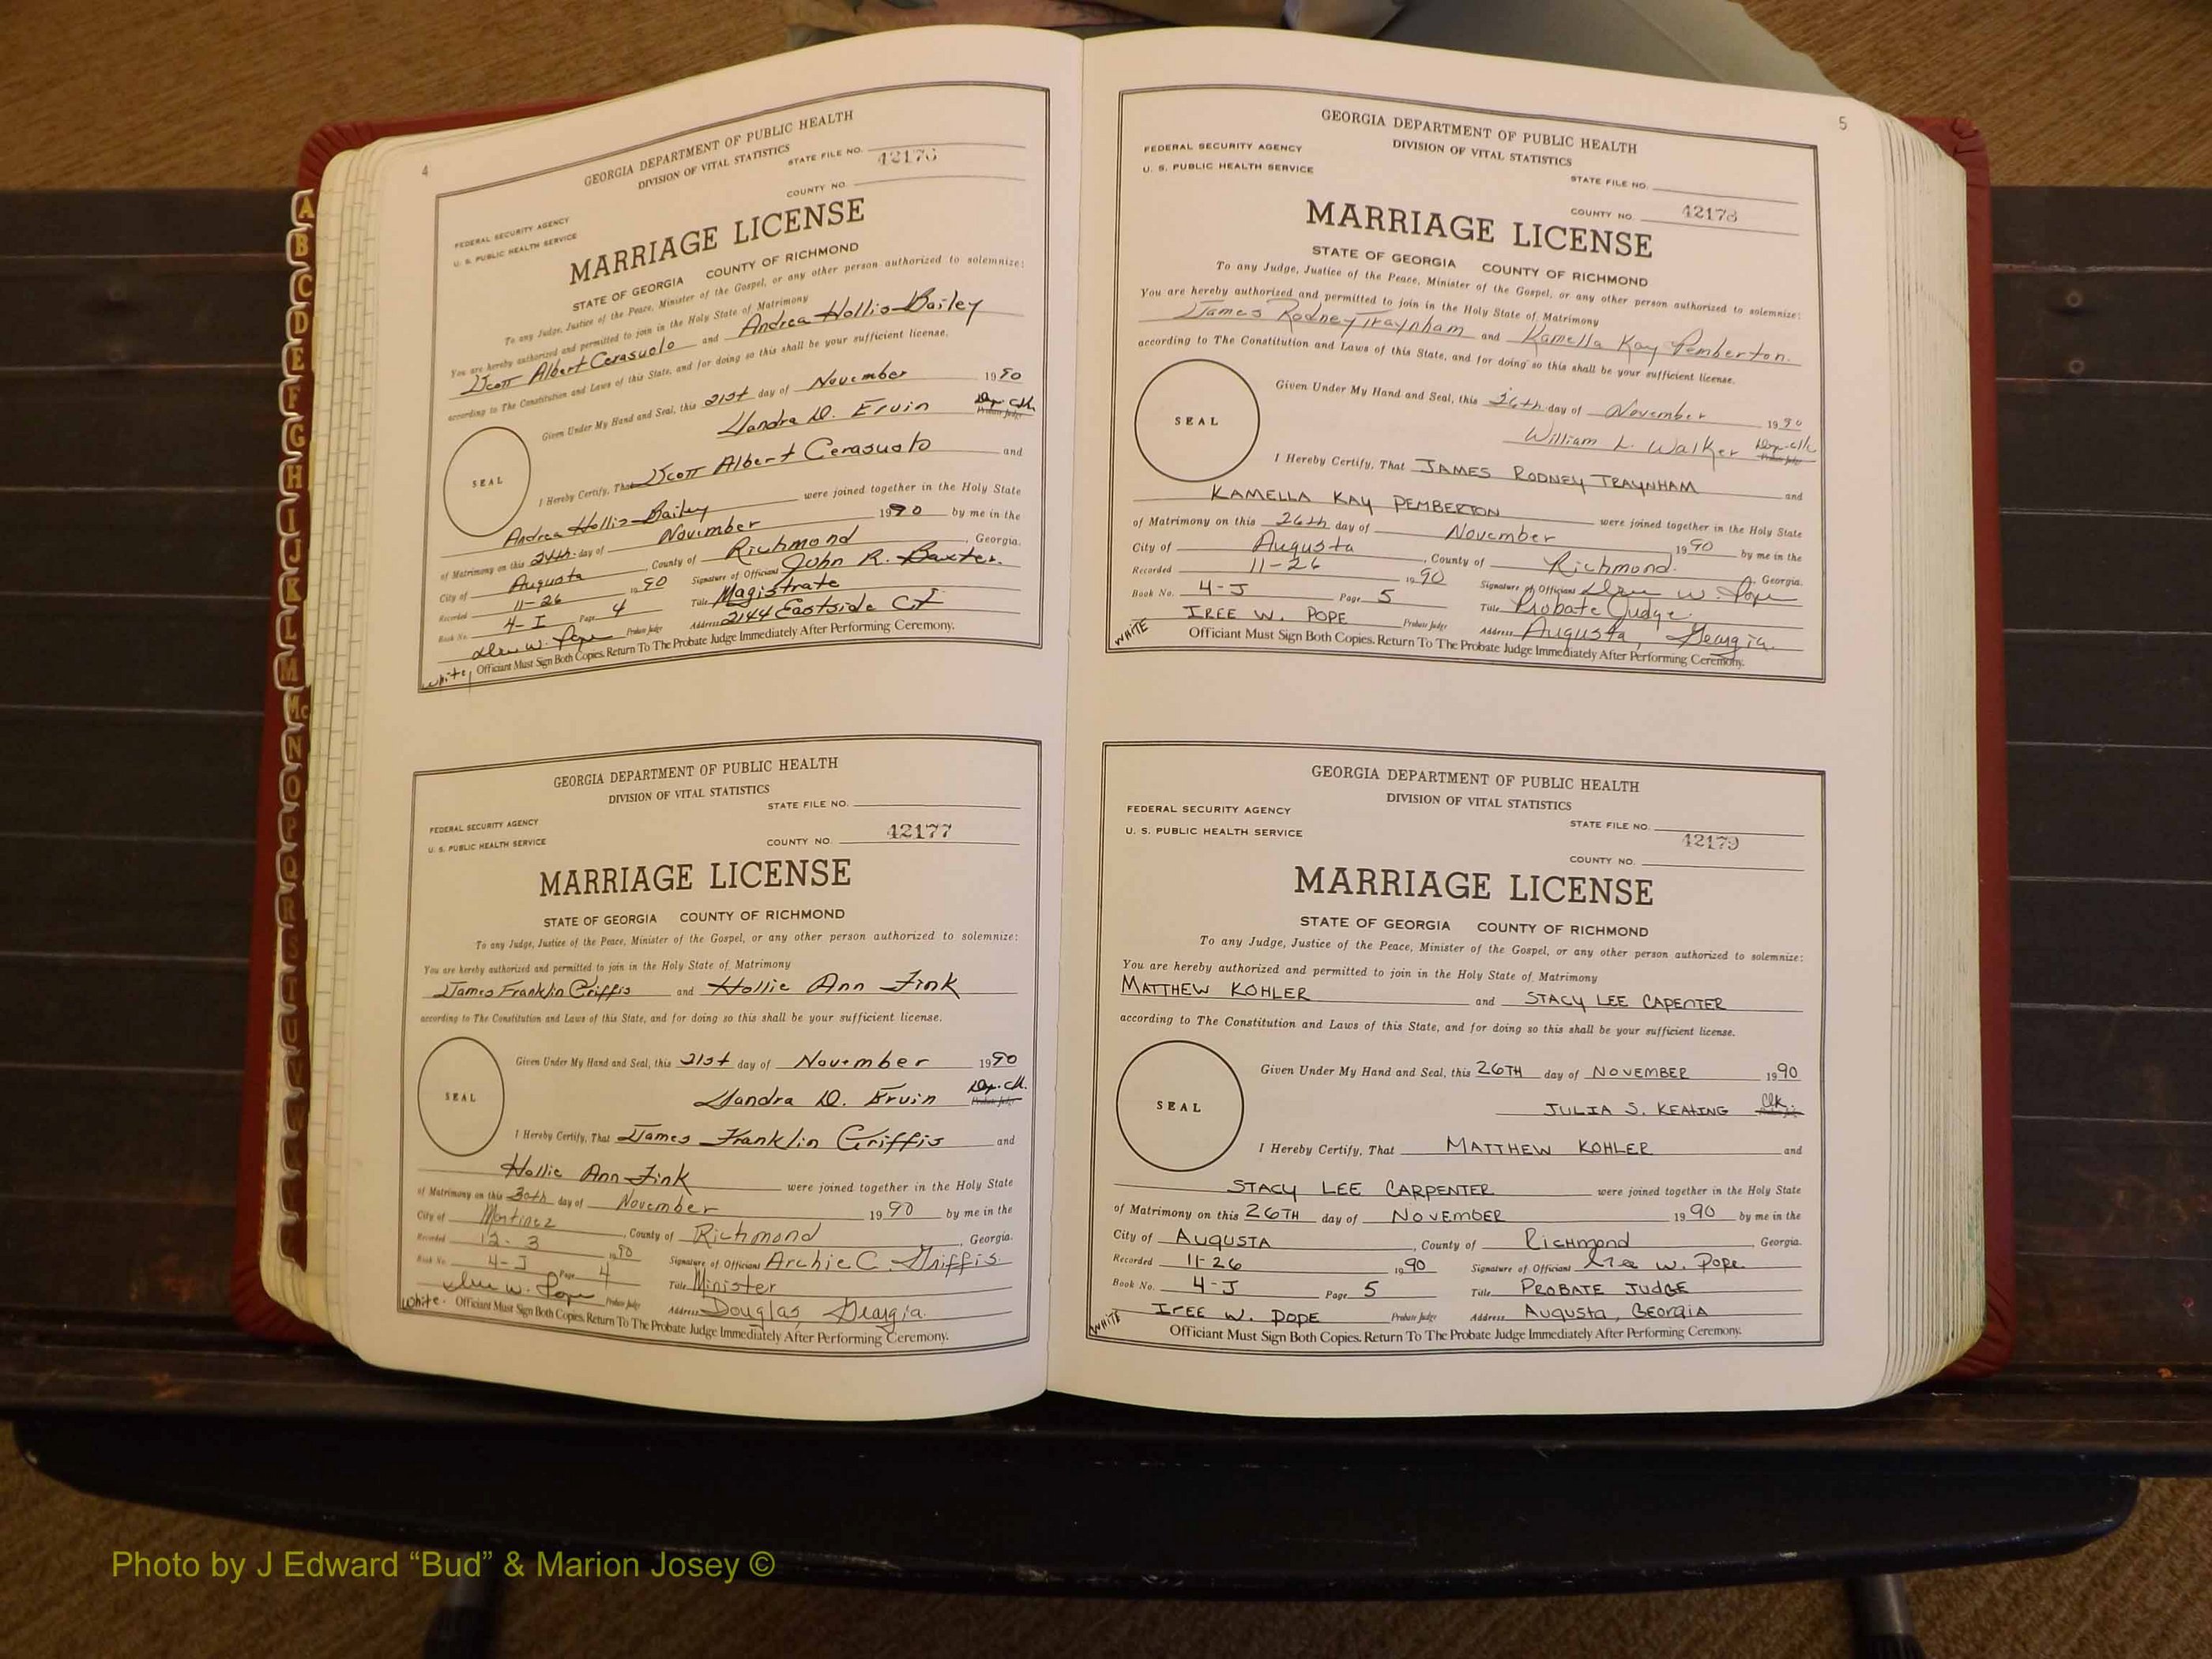 4
GEORGIA DEPARTMENT OF PUBLIC HEALTH
DIVISION OF VITAL STATISTICS
STATE FILE NO. 42176
COUNTY NO.
FEDERAL SECURITY AGENCY
U. S. PUBLIC HEALTH SERVICE
MARRIAGE LICENSE
STATE OF GEORGIA COUNTY OF RICHMOND
To any Judge, Justice of the Peace, Minister of the Gospel, or any other person authorized to solemnize:
You are hereby authorized and permitted to join in the Holy State of Matrimony
Scott Albert Cerasuolo and Andrea Hollis Bailey
according to The Constitution and Laws of this State, and for doing so this shall be your sufficient license.
Given Under My Hand and Seal, this 21st day of November 1990
SEAL
Sandra D. Ervin Dep. Clk. Probate Judge
I Hereby Certify, That Scott Albert Cerasuolo and
Andrea Hollis Bailey were joined together in the Holy State
of Matrimony on this 24th day of November 1990 by me in the
City of Augusta, County of Richmond, Georgia.
Recorded 11-26 1990 Signature of Official John R. Baxter.
Book No. 4-I Page 4 Title Magistrate
Iree W. Pope Probate Judge Address 2144 Eastside Ct
White Officiant Must Sign Both Copies. Return To The Probate Judge Immediately After Performing Ceremony.
GEORGIA DEPARTMENT OF PUBLIC HEALTH
DIVISION OF VITAL STATISTICS
STATE FILE NO.
FEDERAL SECURITY AGENCY
U. S. PUBLIC HEALTH SERVICE
COUNTY NO. 42177
MARRIAGE LICENSE
STATE OF GEORGIA COUNTY OF RICHMOND
To any Judge, Justice of the Peace, Minister of the Gospel, or any other person authorized to solemnize:
You are hereby authorized and permitted to join in the Holy State of Matrimony
James Franklin Griffis and Hollie Ann Fink
according to The Constitution and Laws of this State, and for doing so this shall be your sufficient license.
Given Under My Hand and Seal, this 21st day of November 1990
SEAL
Sandra D. Ervin Dep. Clk. Probate Judge
I Hereby Certify, That James Franklin Griffis and
Hollie Ann Fink were joined together in the Holy State
of Matrimony on this 30th day of November 1990 by me in the
City of Martinez, County of Richmond, Georgia.
Recorded 12-3 1990 Signature of Official Archie C. Griffis
Book No. 4-J Page 4 Title Minister
Iree W. Pope Probate Judge Address Douglas, Georgia.
White. Officiant Must Sign Both Copies. Return To The Probate Judge Immediately After Performing Ceremony.
5
GEORGIA DEPARTMENT OF PUBLIC HEALTH
DIVISION OF VITAL STATISTICS
FEDERAL SECURITY AGENCY
U. S. PUBLIC HEALTH SERVICE
STATE FILE NO.
COUNTY NO. 42178
MARRIAGE LICENSE
STATE OF GEORGIA COUNTY OF RICHMOND
To any Judge, Justice of the Peace, Minister of the Gospel, or any other person authorized to solemnize:
You are hereby authorized and permitted to join in the Holy State of Matrimony
James Rodney Traynham and Kamella Kay Pemberton.
according to The Constitution and Laws of this State, and for doing so this shall be your sufficient license.
Given Under My Hand and Seal, this 26th day of November 1990
SEAL
William L. Walker Dep. Clk Probate Judge
I Hereby Certify, That JAMES RODNEY TRAYNHAM and
KAMELLA KAY PEMBERTON were joined together in the Holy State
of Matrimony on this 26th day of November 1990 by me in the
City of Augusta, County of Richmond. Georgia.
Recorded 11-26 1990 Signature of Official Iree W. Pope
Book No. 4-J Page 5 Title Probate Judge
IREE W. POPE Probate Judge Address Augusta, Georgia.
WHITE Officiant Must Sign Both Copies. Return To The Probate Judge Immediately After Performing Ceremony.
GEORGIA DEPARTMENT OF PUBLIC HEALTH
DIVISION OF VITAL STATISTICS
FEDERAL SECURITY AGENCY
STATE FILE NO.
U. S. PUBLIC HEALTH SERVICE
42179
COUNTY NO.
MARRIAGE LICENSE
STATE OF GEORGIA COUNTY OF RICHMOND
To any Judge, Justice of the Peace, Minister of the Gospel, or any other person authorized to solemnize:
You are hereby authorized and permitted to join in the Holy State of Matrimony
MATTHEW KOHLER and STACY LEE CAPENTER
according to The Constitution and Laws of this State, and for doing so this shall be your sufficient license.
Given Under My Hand and Seal, this 26TH day of NOVEMBER 1990
SEAL
JULIA S. KEATING Clk.
I Hereby Certify, That MATTHEW KOHLER and
STACY LEE CARPENTER were joined together in the Holy State
of Matrimony on this 26TH day of NOVEMBER 1990 by me in the
City of AUGUSTA, County of Richmond, Georgia.
Recorded 11-26 1990 Signature of Official Iree W. Pope
Book No. 4-J Page 5 Title PROBATE JUDGE
IREE W. POPE Probate Judge Address Augusta, GEORGIA
WHITE Officiant Must Sign Both Copies. Return To The Probate Judge Immediately After Performing Ceremony.
A
B
C
D
E
F
G
H
I
J
K
L
M
Mc
N
O
P
Q
R
S
T
U
V
W
Photo by J Edward “Bud” & Marion Josey ©